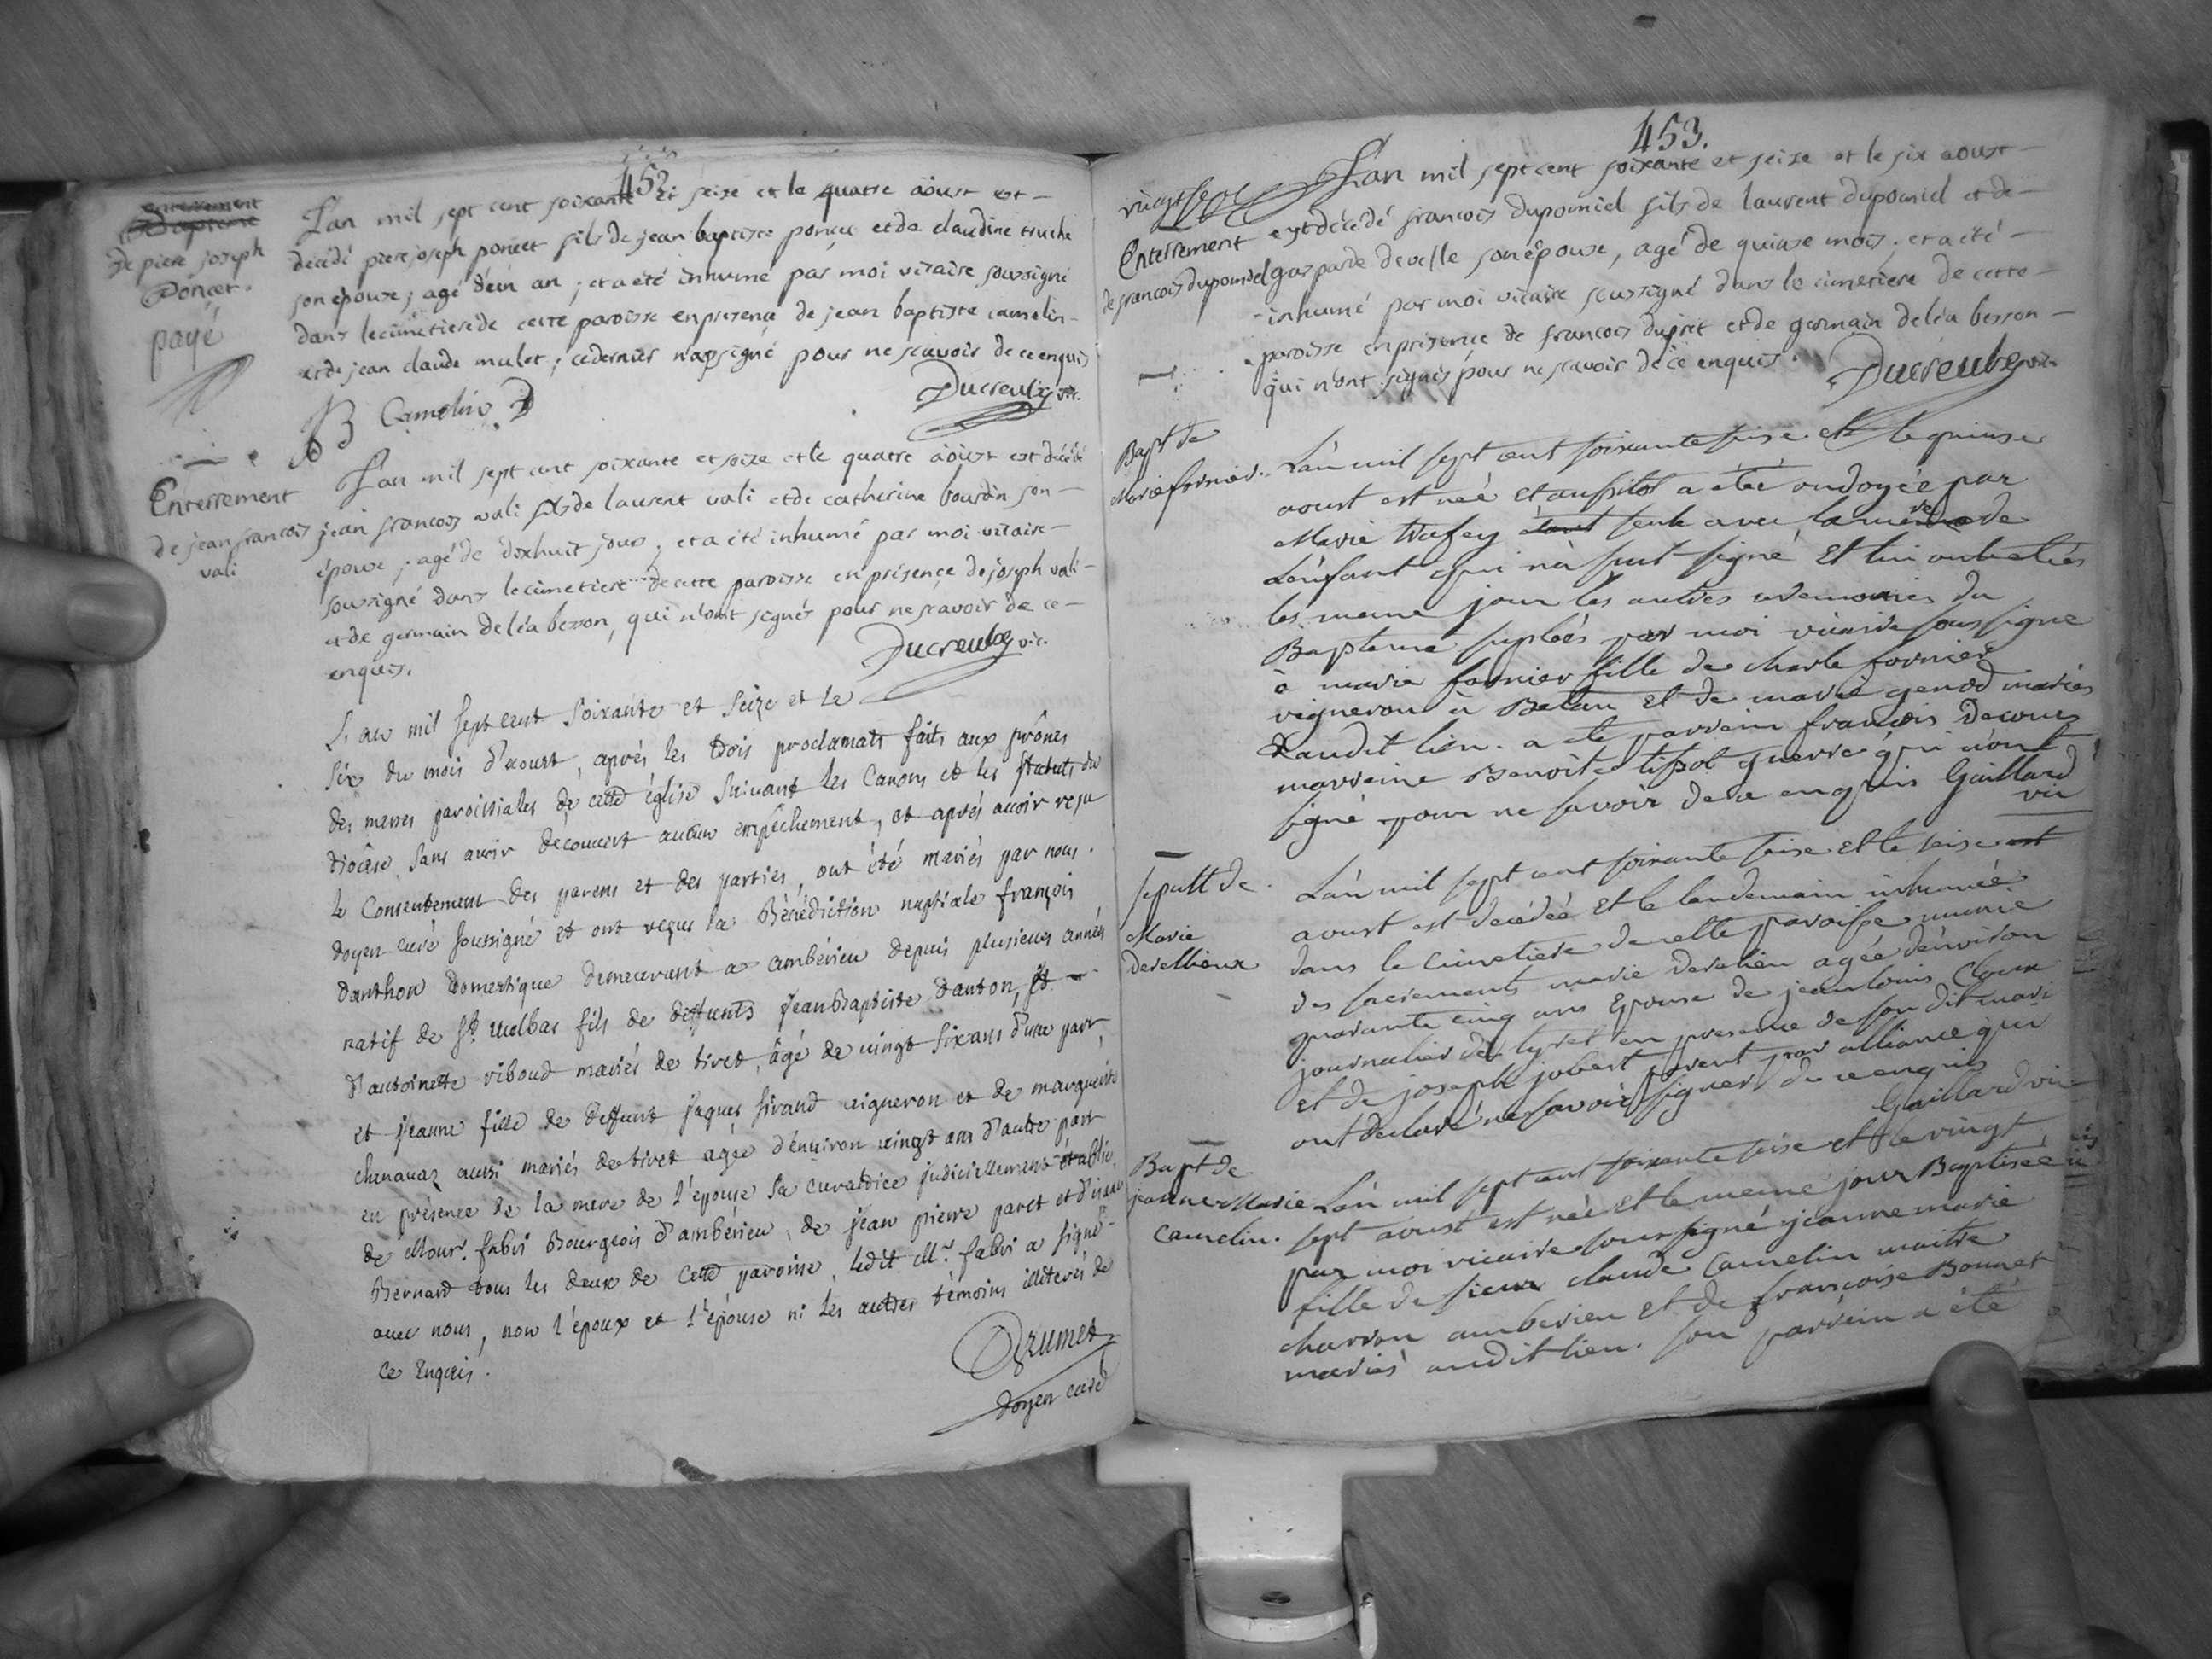 452.
enterrement
Bapteme
de piere joseph
Poncet.
payé
L'an mil sept cent soixante et seize et le quatre août est
décédé piere joseph poncet fils de jean baptiste poncet et de claudine truche
son épouse, agé d'ein an, et a été inhumé par moi vicaire soussigné
dans le cimetiere de cette paroisse en presence de jean baptiste camelin
et de jean claude mulet, ce dernier n'a signé pour ne scavoir de ce enquis
Ducreulx vic.
B Camelin
Enterrement
de jean francois
vali
L'an mil sept cent soixante et seize et le quatre août est décédé
jean francois vali fils de laurent vali et de catherine bourdin son
épouse, agé de dixhuit jours, et a été inhumé par moi vicaire
soussigné dans le cimetiere de cette paroisse en présence de joseph vali
et de germain deléa besson, qui n'ont signés pour ne scavoir de ce
enquis.
Ducreulx vic.
L'an mil sept cent soixante et seize et le
six du mois d'aoust, aprés les trois proclamats faits aux prônes
des messes paroissiales de cette église suivant les Canons et les statuts du
diocèse, sans avoir decouvert aucun empêchement, et aprés avoir reçu
le Consentement des parens et des parties, ont été mariés par nous
doyen curé soussigné et ont reçus la Bénédiction nuptiale françois
danthon domestique demeurant a ambérieu depuis plusieurs années
natif de St. uulbas fils de deffunts jean baptiste danton, et
d'antoinette riboud mariés de tiret, âgé de vingt six ans d'une part,
et jeanne fille de deffunt jaques sirand vigneron et de marguerite
chenavaz aussi mariés de tiret agée d'environ vingt ans d'autre part
en présence de la mere de l'épouse sa curatrice judiciellement établie,
de Mour. fabri Bourgeois d'ambérieu, de jean pierre paret et
Bernard tous les deux de cette paroisse, ledit Mr. fabri a signé
avec nous, non l'époux et l'épouse ni les autres témoins illiterés de
ce Enquis.
Grumet
doyen curé
453.
vingt sept
Enterrement
de francois dupomiel
L'an mil sept cent soixante et seize et le six aoust
est décédé francois dupomiel fils de laurent dupomiel et de
gasparde develle son épouse, agé de quinze mois, et a été
inhumé par moi vicaire soussigné dans le cimetiere de cette
paroisse en présence de francois dupret et de germain deléa besson
qui n'ont signés pour ne scavoir de ce enquis.
Ducreulx vic.
Bapt de
Marie fornier.
L'an mil sept cent soixante seise et le quinse
aoust est née et aussitot a été ondoyée par
Marie trafey étant seule avec la mere de
L'enfant qui n'a scut signé et lui ont etés
les meme jour les autres ceremonies du
Bapteme suplées par moi vicaire soussigne
a marie fornier fille de charle fornier
vigneron à Betan et de marie genod mariés
Laudit lieu. a ete parrein françois Decours
marreine Benoite tissot guerre qui n'ont
signé pour ne savoir de ce enquis Gaillard
vic
sepult de
Marie
Derellieux
L'an mil sept cent soixante seise et le seise est
aoust est decédeé et le landemain inhumée
dans le Cimetiere de cette paroisse munie
des sacrements marie derelieu agée d'environ
quarante cinq ans Epouse de jean louis Cloux
journalier de tyret en presence de son dit mari
et de joseph jobert parent par alliance qui
ont declaré ne savoir signer de ce enquis
Gaillard vic
Bapt de
jeanne Marie
Camelin.
L'an mil sept cent soixante seise et le vingt
sept aoust est née et le meme jour Baptisée
par moi vicaire soussigné jeanne marie
fille de sieur claude Camelin maitre
charron amberieu et de françoise Bonnet
mariés audit lieu. son parrein a été